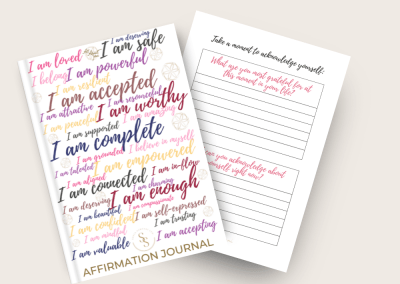 I am deserving
I am loved
I am safe
I belong
I am powerful
I am resilient
I am accepted
I am attractive
I am resourceful
I am worthy
I am peaceful
I am amazing
I am supported
I am complete
I am grounded
I believe in myself
I am talented
I am empowered
I am aligned
I am in-flow
I am connected
I am charming
I am deserving
I am enough
I am beautiful
I am compassionate
I am confident
I am self-expressed
I am mindful
I am trusting
I am valuable
I am accepting
AFFIRMATION JOURNAL
Take a moment to acknowledge yourself:
What are you most grateful for at
this moment in your life?
you acknowledge about
yourself right now?